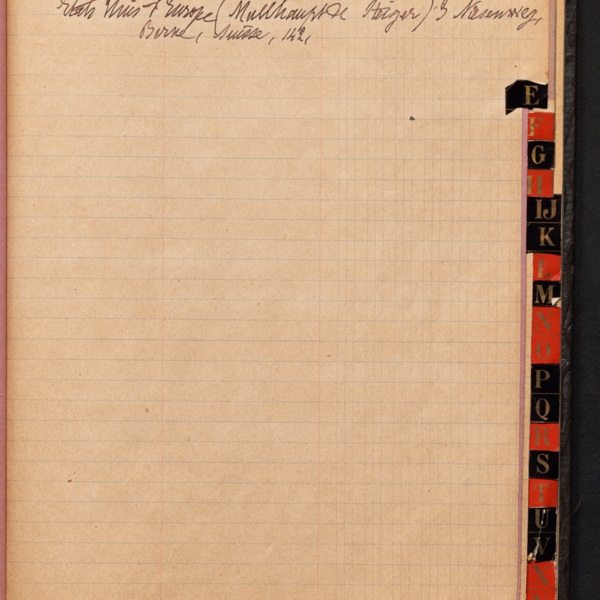 Etats Unis d'Europe (Mullhaupt de Steiger) 3 Nasenweg,
Berne, Suisse, 142,
E
F
G
H
IJ
K
L
M
N
O
P
Q
R
S
T
U
V